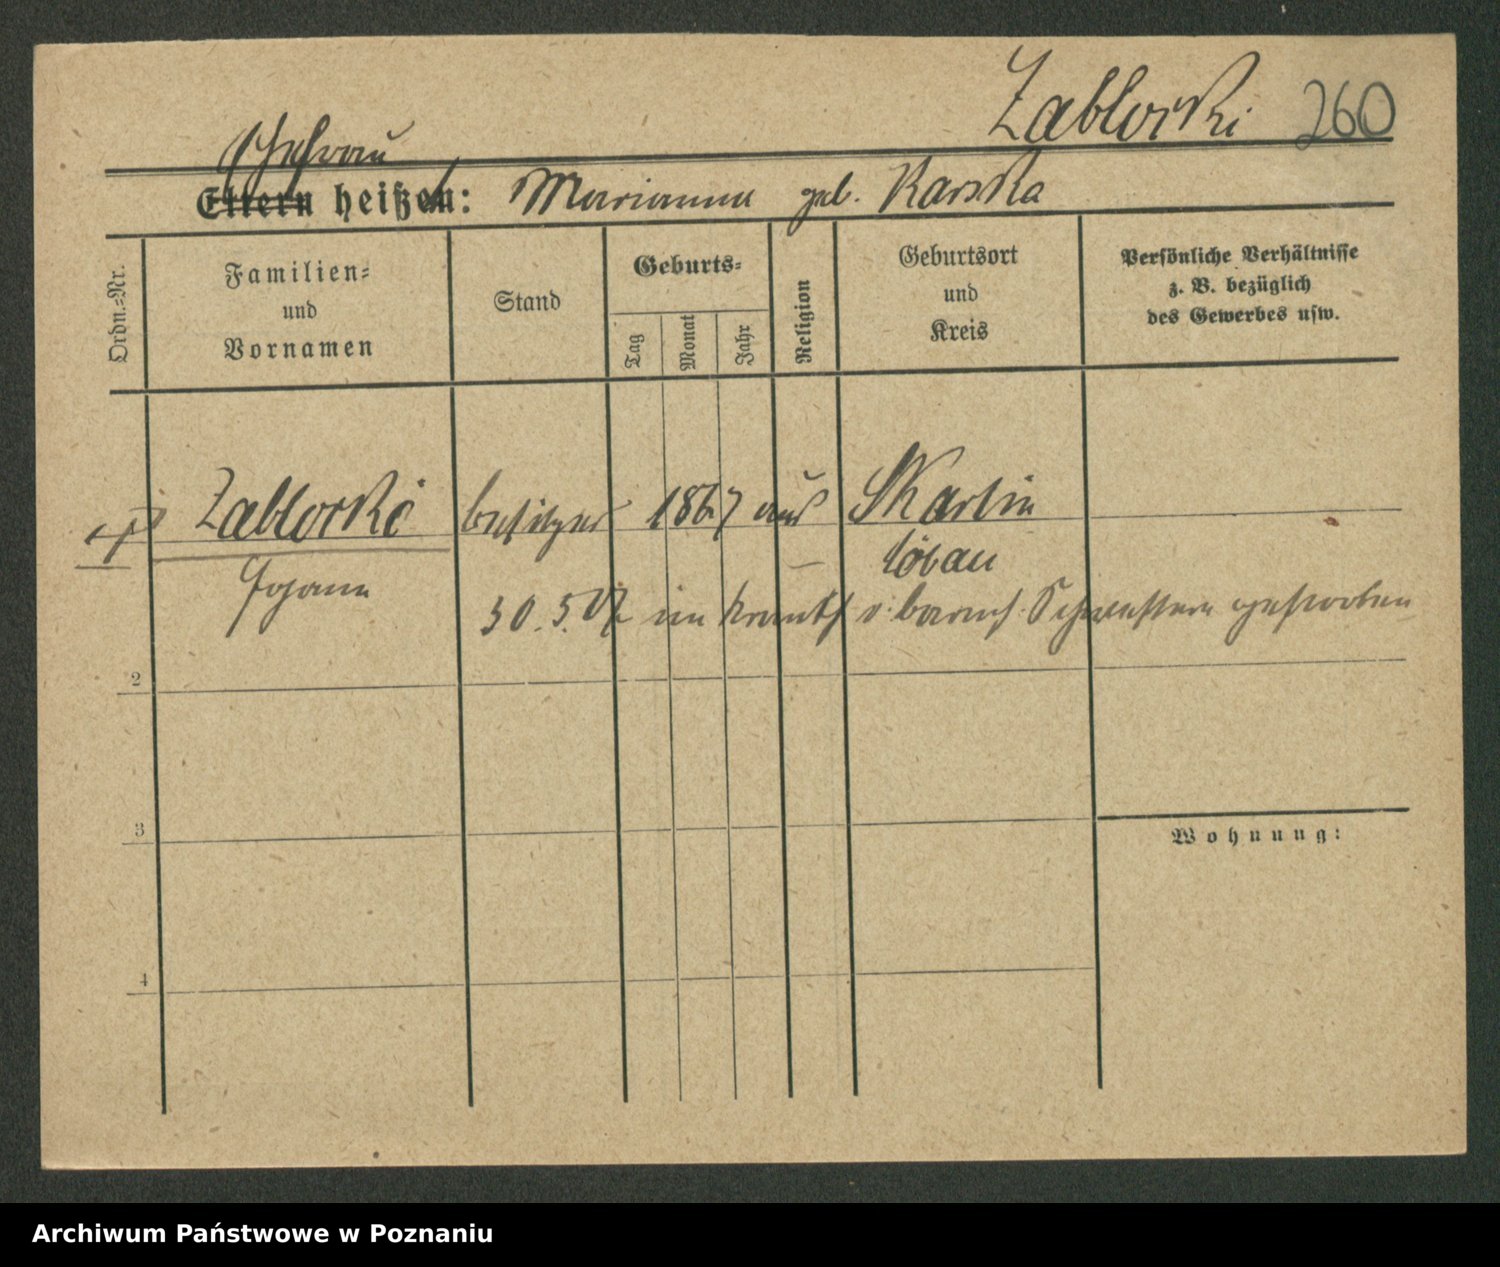 Zablocki 260
Ehefrau
Eltern heißen: Marianna geb. Karska
Ordn.=Nr.
Familien=
und
Vornamen
Stand
Geburts=
Tag
Monat
Jahr
Religion
Geburtsort
und
Kreis
Persönliche Verhältnisse
z. B. bezüglich
des Gewerbes usw.
Zablocki besitzer 1867 aus Skarlin
Johann Löbau
30.5.07 im Krankh. v. barmh. Schwestern gestorben
2
3
Wohnung:
4
Archiwum Państwowe w Poznaniu